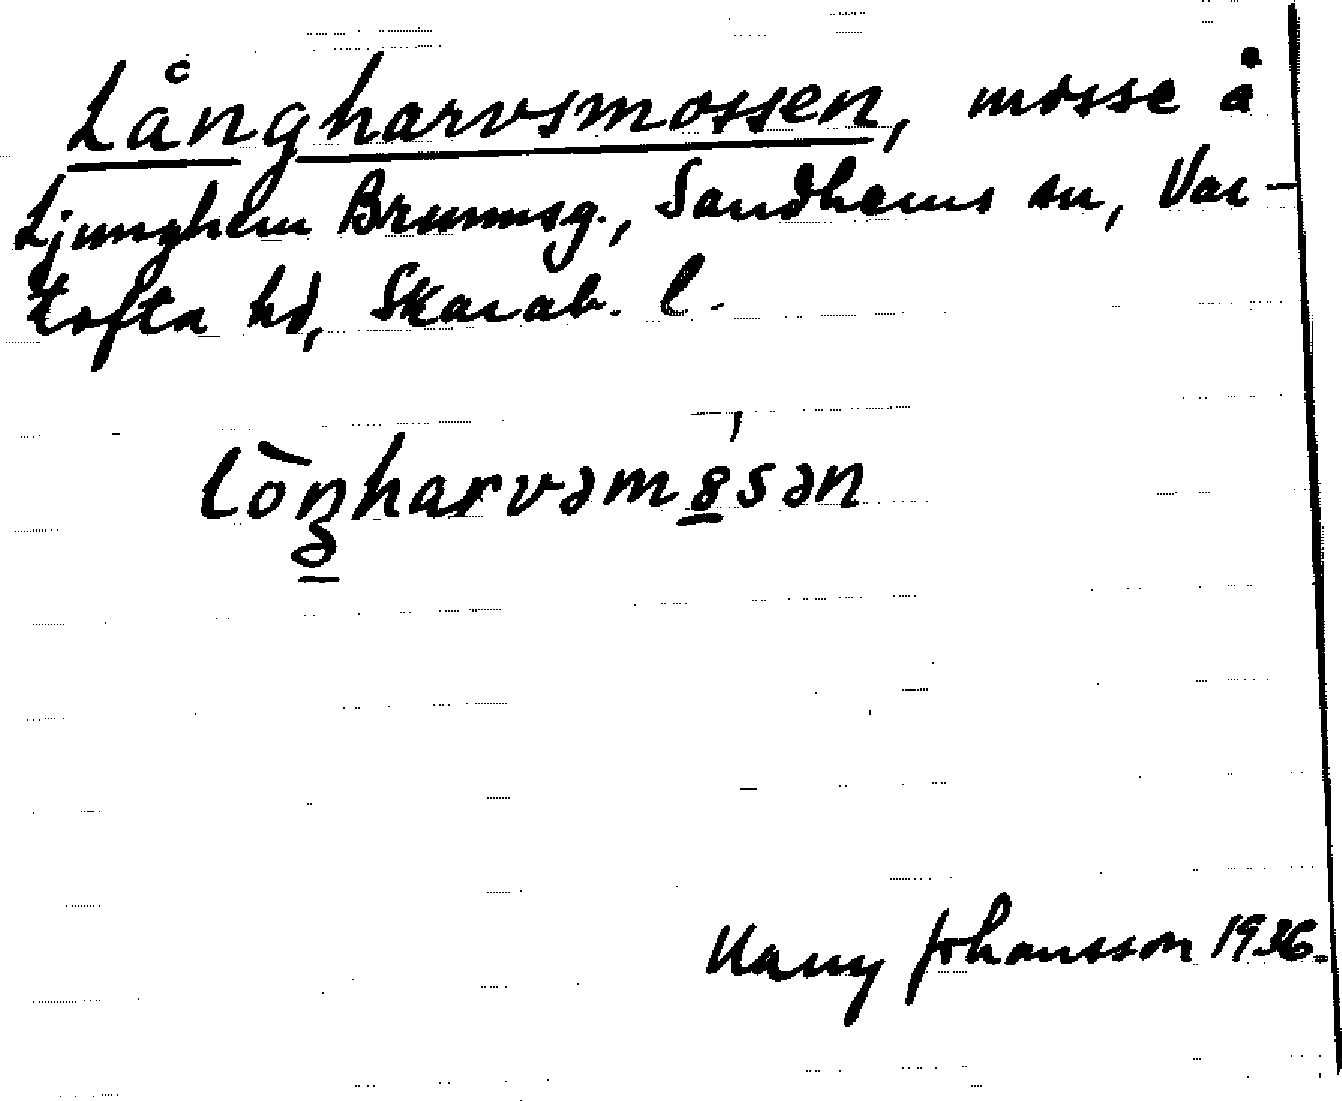 Långharvsmossen, mosse å
Ljunghem Brunnsg., Sandhems sn, Var-
tofta hd, Skarab. l.
Harry Johansson 1936.